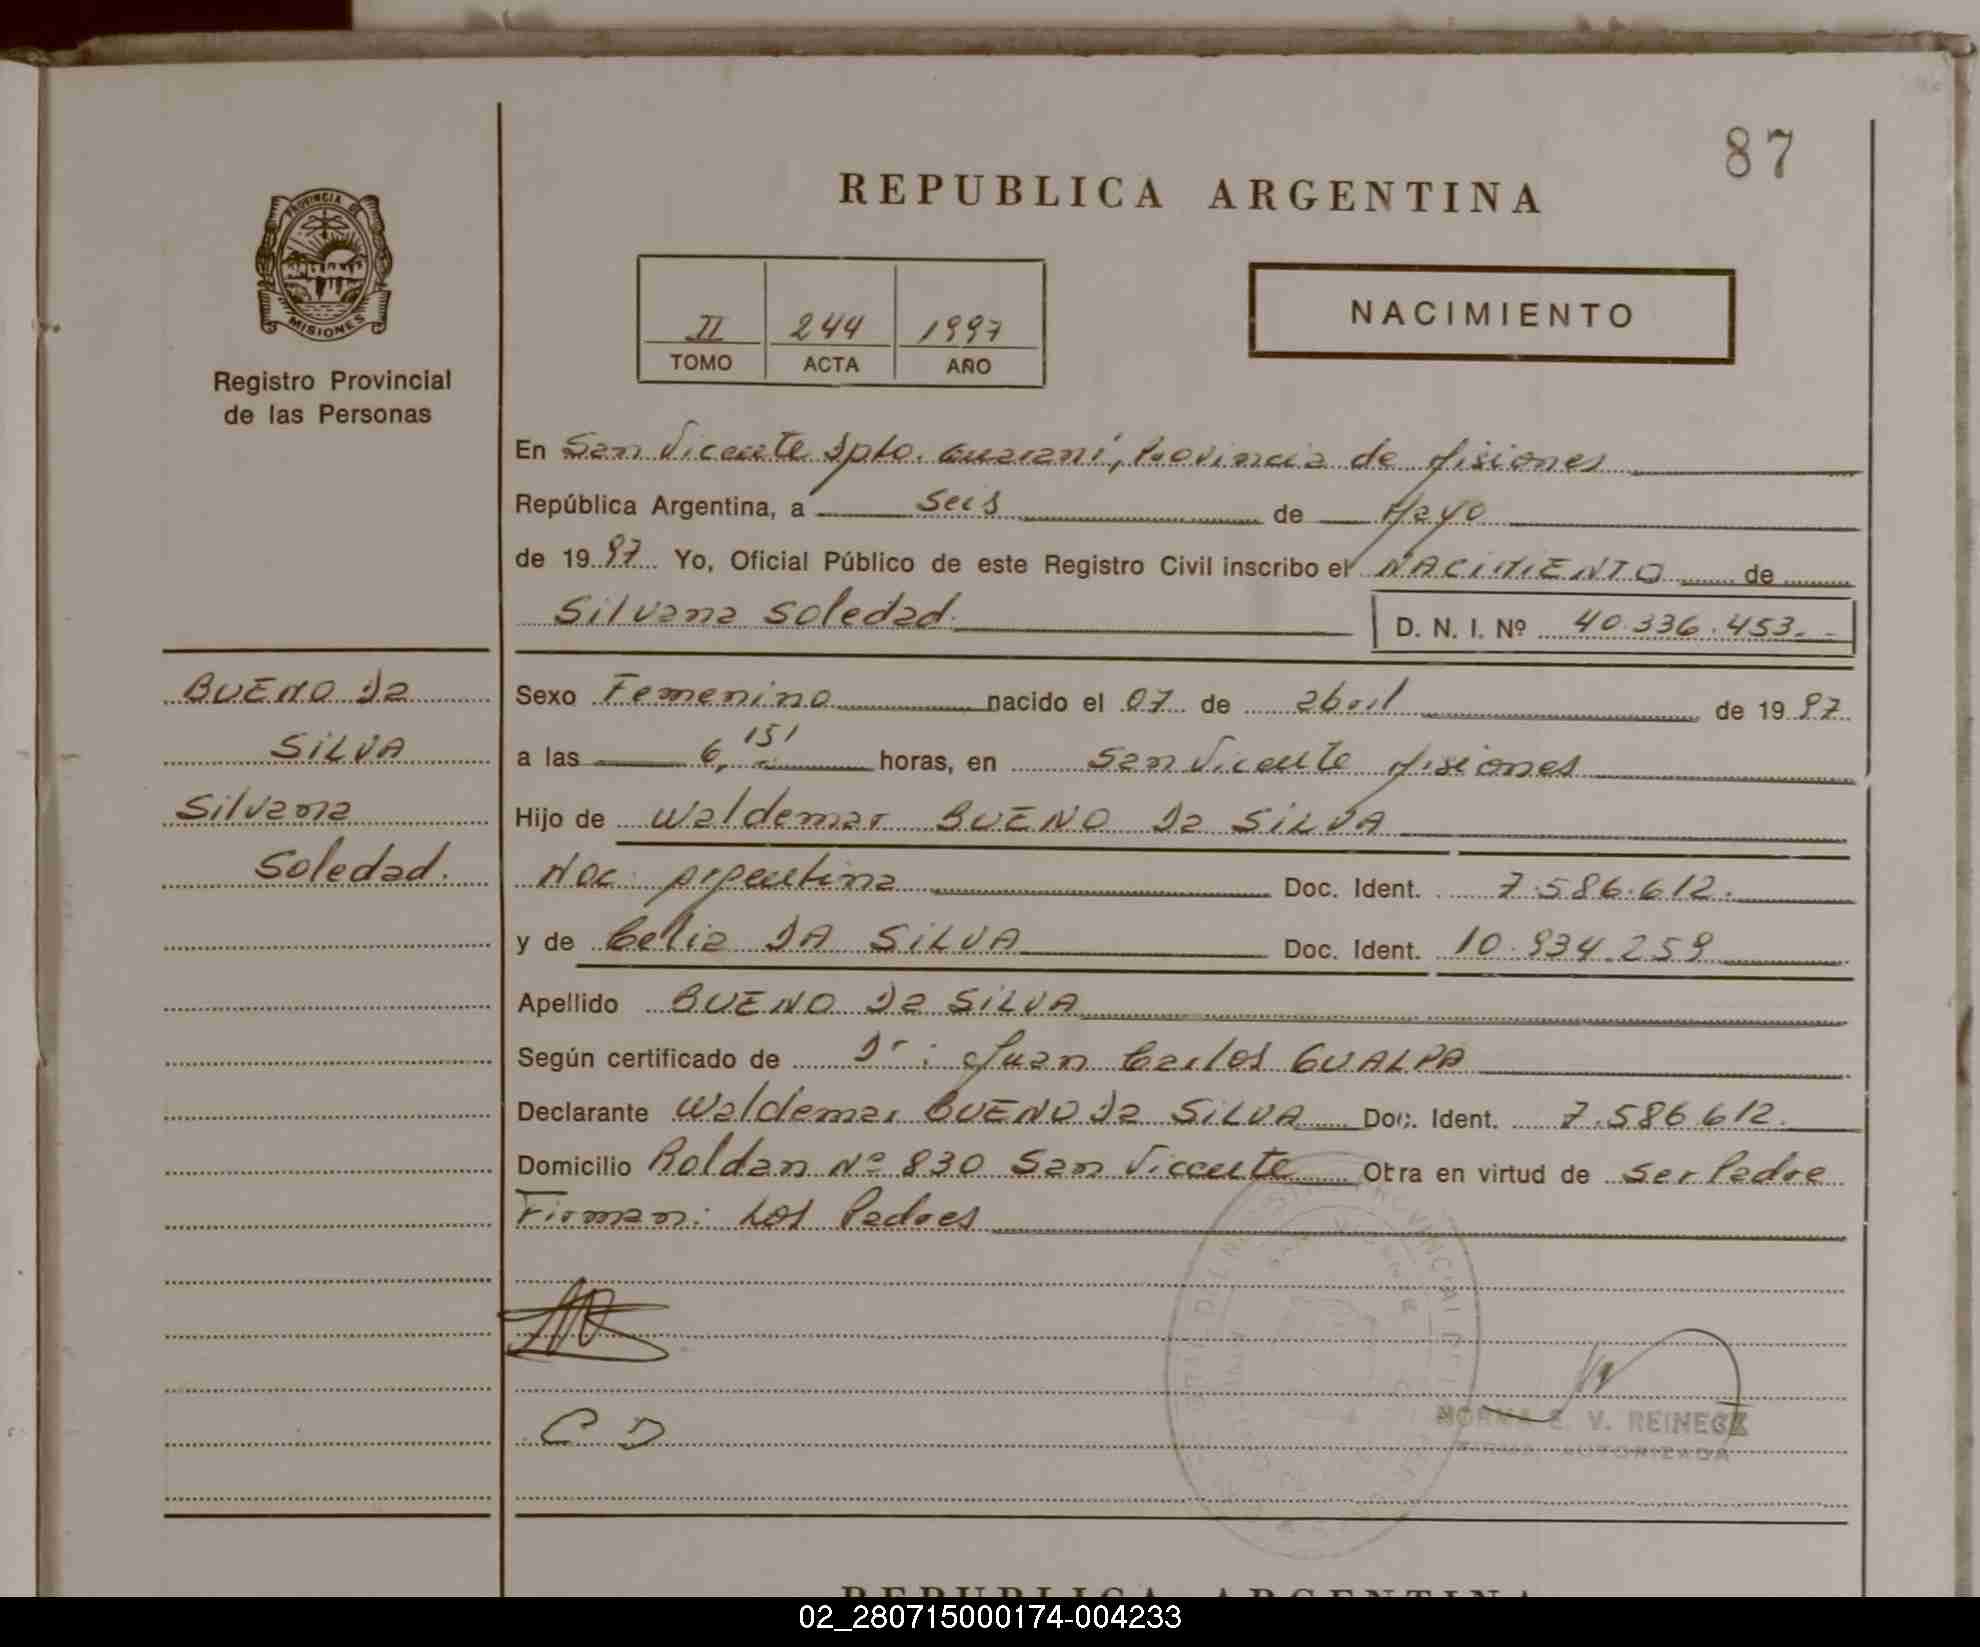 87
REPUBLICA ARGENTINA
PROVINCIA DE
MISIONES
Registro Provincial
de las Personas
II 244 1997
TOMO ACTA AÑO
NACIMIENTO
En San Vicente Dpto. Guaraní, Provincia de Misiones
República Argentina, a seis de Mayo
de 1997 Yo, Oficial Público de este Registro Civil inscribo el NACIMIENTO de
Silvana Soledad. D. N. I. Nº 40.336.453.-
BUENO Da
SILVA
Silvana
Soledad.
Sexo Femenino nacido el 07 de abril de 1997
a las 6,15' horas, en San Vicente Misiones
Hijo de Waldemar BUENO Da SILVA
Nac. Argentina Doc. Ident. 7.586.612.
y de Celia DA SILVA Doc. Ident. 10.934.259
Apellido BUENO Da SILVA
Según certificado de Dr: Juan Carlos GUALPA
Declarante Waldemar BUENO Da SILVA Doc. Ident. 7.586.612.
Domicilio Roldan Nº 830 San Vicente Obra en virtud de ser Padre
Firman: Los Padres
C D
NORMA E. V. REINECK
FIRMA AUTORIZADA
REPUBLICA ARGENTINA
02_280715000174-004233